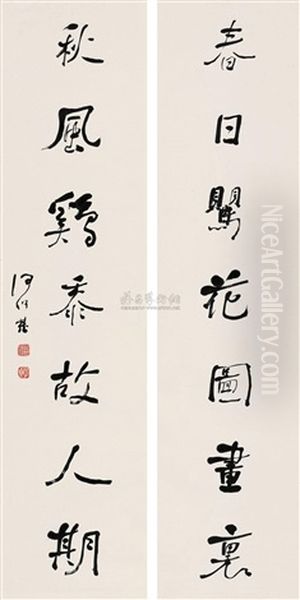 春日鸎花圖畫裏
秋風鷄黍故人期
NiceArtGallery.com